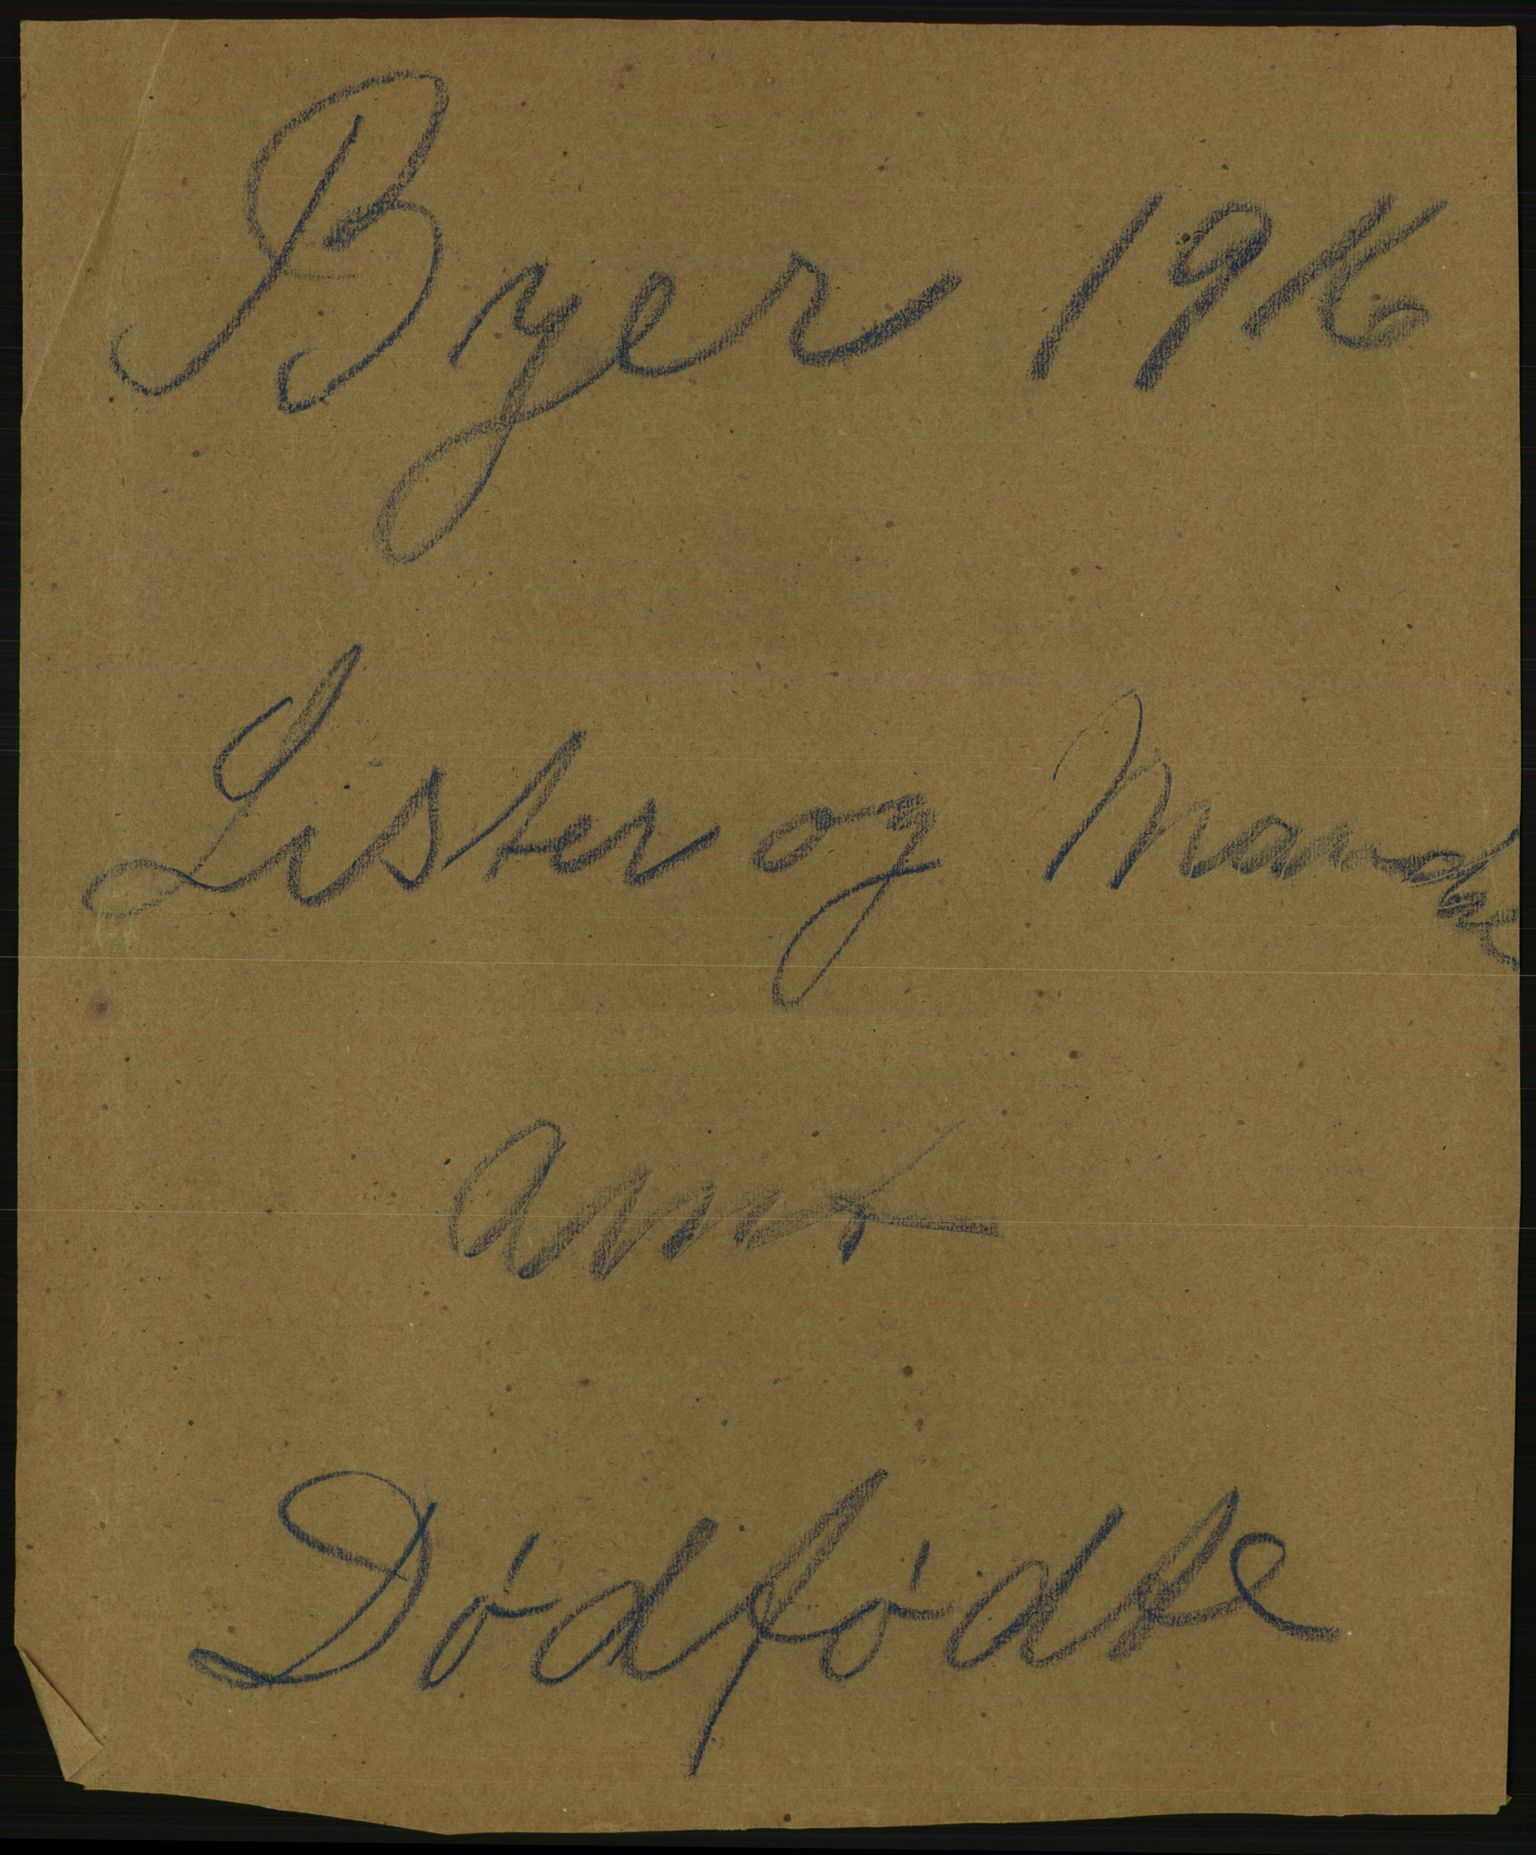 Byer 1916
Lister og Mandal
Amt
Dødfødte